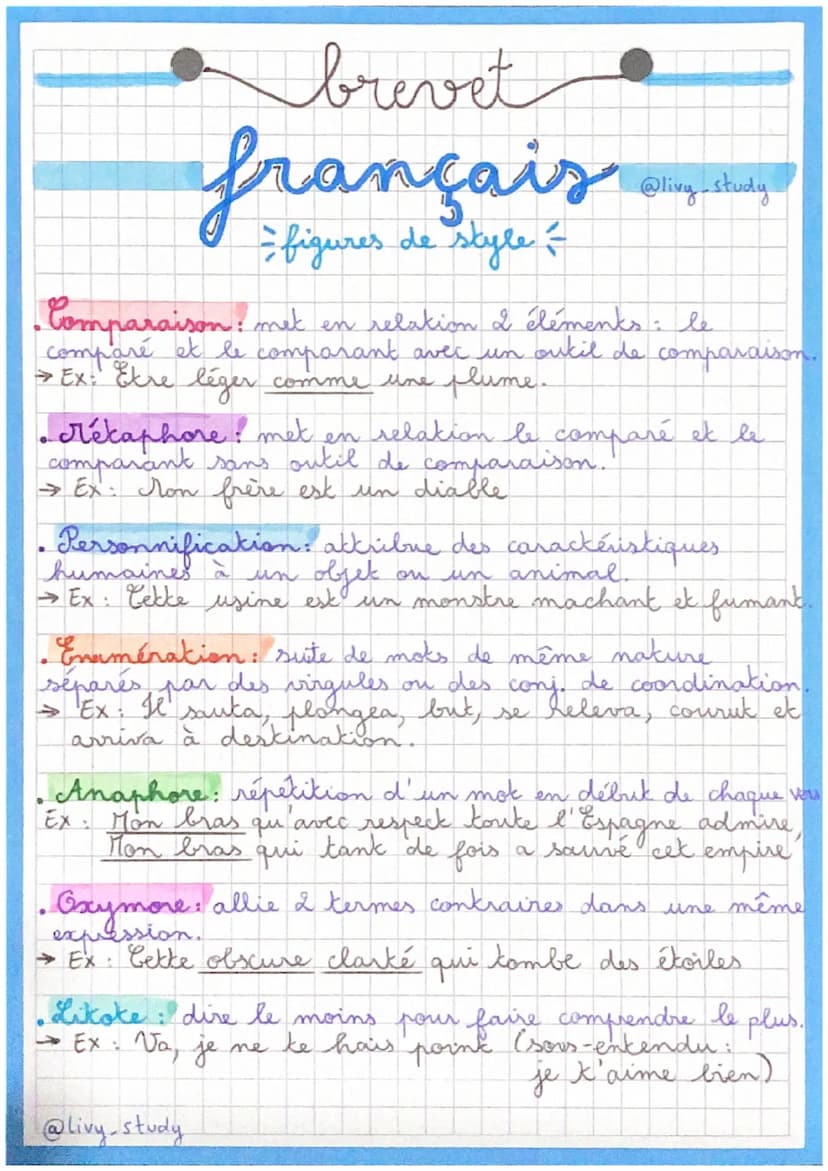 brevet
français
@livy_study
figures de style
• Comparaison : met en relation 2 éléments : le
comparé et le comparant avec un outil de comparaison.
→ Ex : Etre léger comme une plume.
• Métaphore : met en relation le comparé et le
comparant sans outil de comparaison.
→ Ex : Mon frère est un diable
• Personnification : attribue des caractéristiques
humaines à un objet ou un animal.
→ Ex : Cette usine est un monstre machant et fumant.
• Enumération : suite de mots de même nature
séparés par des virgules ou des conj. de coordination.
→ Ex : Il sauta, plongea, but, se releva, courut et
arriva à destination.
• Anaphore : répétition d'un mot en début de chaque vers
Ex : Mon bras qu'avec respect toute l'Espagne admire,
Mon bras qui tant de fois a sauvé cet empire
• Oxymore : allie 2 termes contraires dans une même
expression.
→ Ex : Cette obscure clarté qui tombe des étoiles
• Litote : dire le moins pour faire comprendre le plus.
→ Ex : Va, je ne te hais point (sous-entendu :
je t'aime bien)
@livy_study